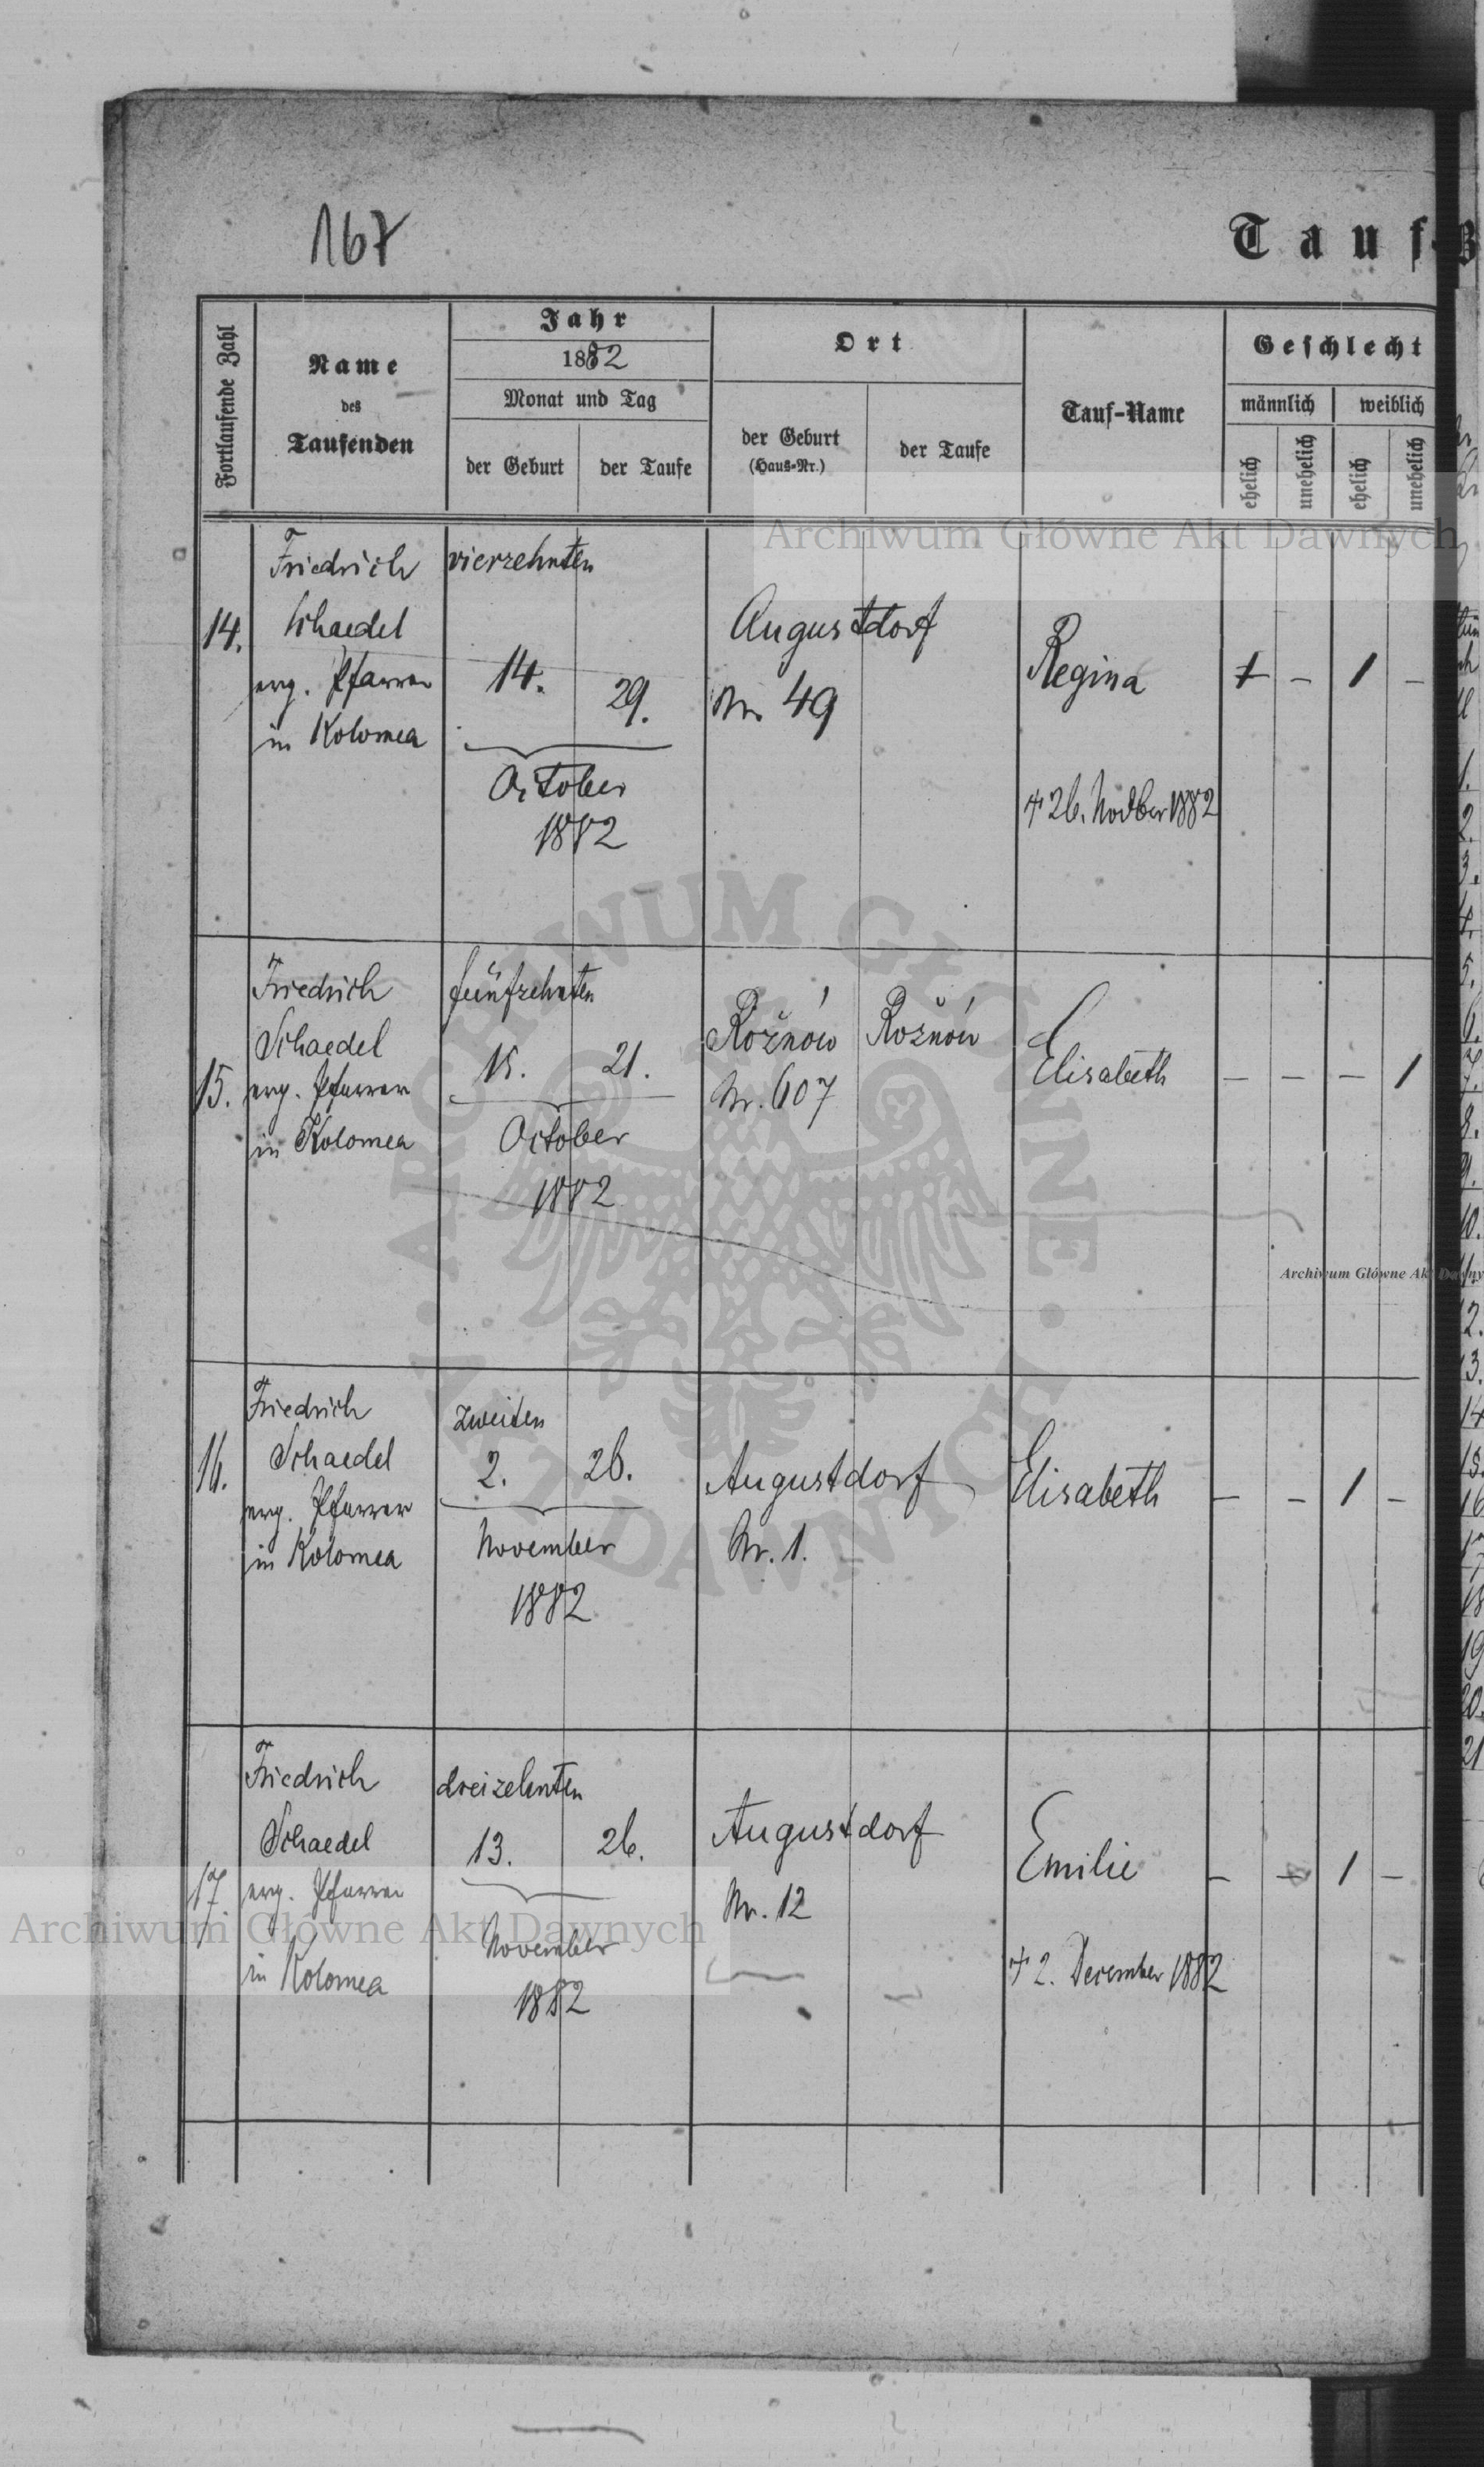 167
Tauf-B
Fortlaufende Zahl
Name
des
Taufenden
Jahr
1882
Monat und Tag
der Geburt
der Taufe
Ort
der Geburt
(Haus-Nr.)
der Taufe
Tauf-Name
Geschlecht
männlich
weiblich
ehelich
unehelich
ehelich
unehelich
14.
Friedrich
Schaedel
evg. Pfarrer
in Kolomea
vierzehnten
14.
29.
October
1882
Augustdorf
Nr. 49
Regina
† 26. Novber 1882
1 – 1 –
15.
Friedrich
Schaedel
evg. Pfarrer
in Kolomea
fünfzehnten
15.
21.
October
1882
Rožnów
Nr. 607
Rožnów
Elisabeth
– – – 1
16.
Friedrich
Schaedel
evg. Pfarrer
in Kolomea
zweiten
2.
26.
November
1882
Augustdorf
Nr. 1.
Elisabeth
– – 1 –
17.
Friedrich
Schaedel
evg. Pfarrer
in Kolomea
dreizehnten
13.
26.
November
1882
Augustdorf
Nr. 12
Emilie
† 2. December 1882
– – 1 –
Archiwum Główne Akt Dawnych
Archiwum Główne Akt Dawny
Archiwum Główne Akt Dawnych
ARCHIWUM GŁÓWNE
AKT DAWNYCH